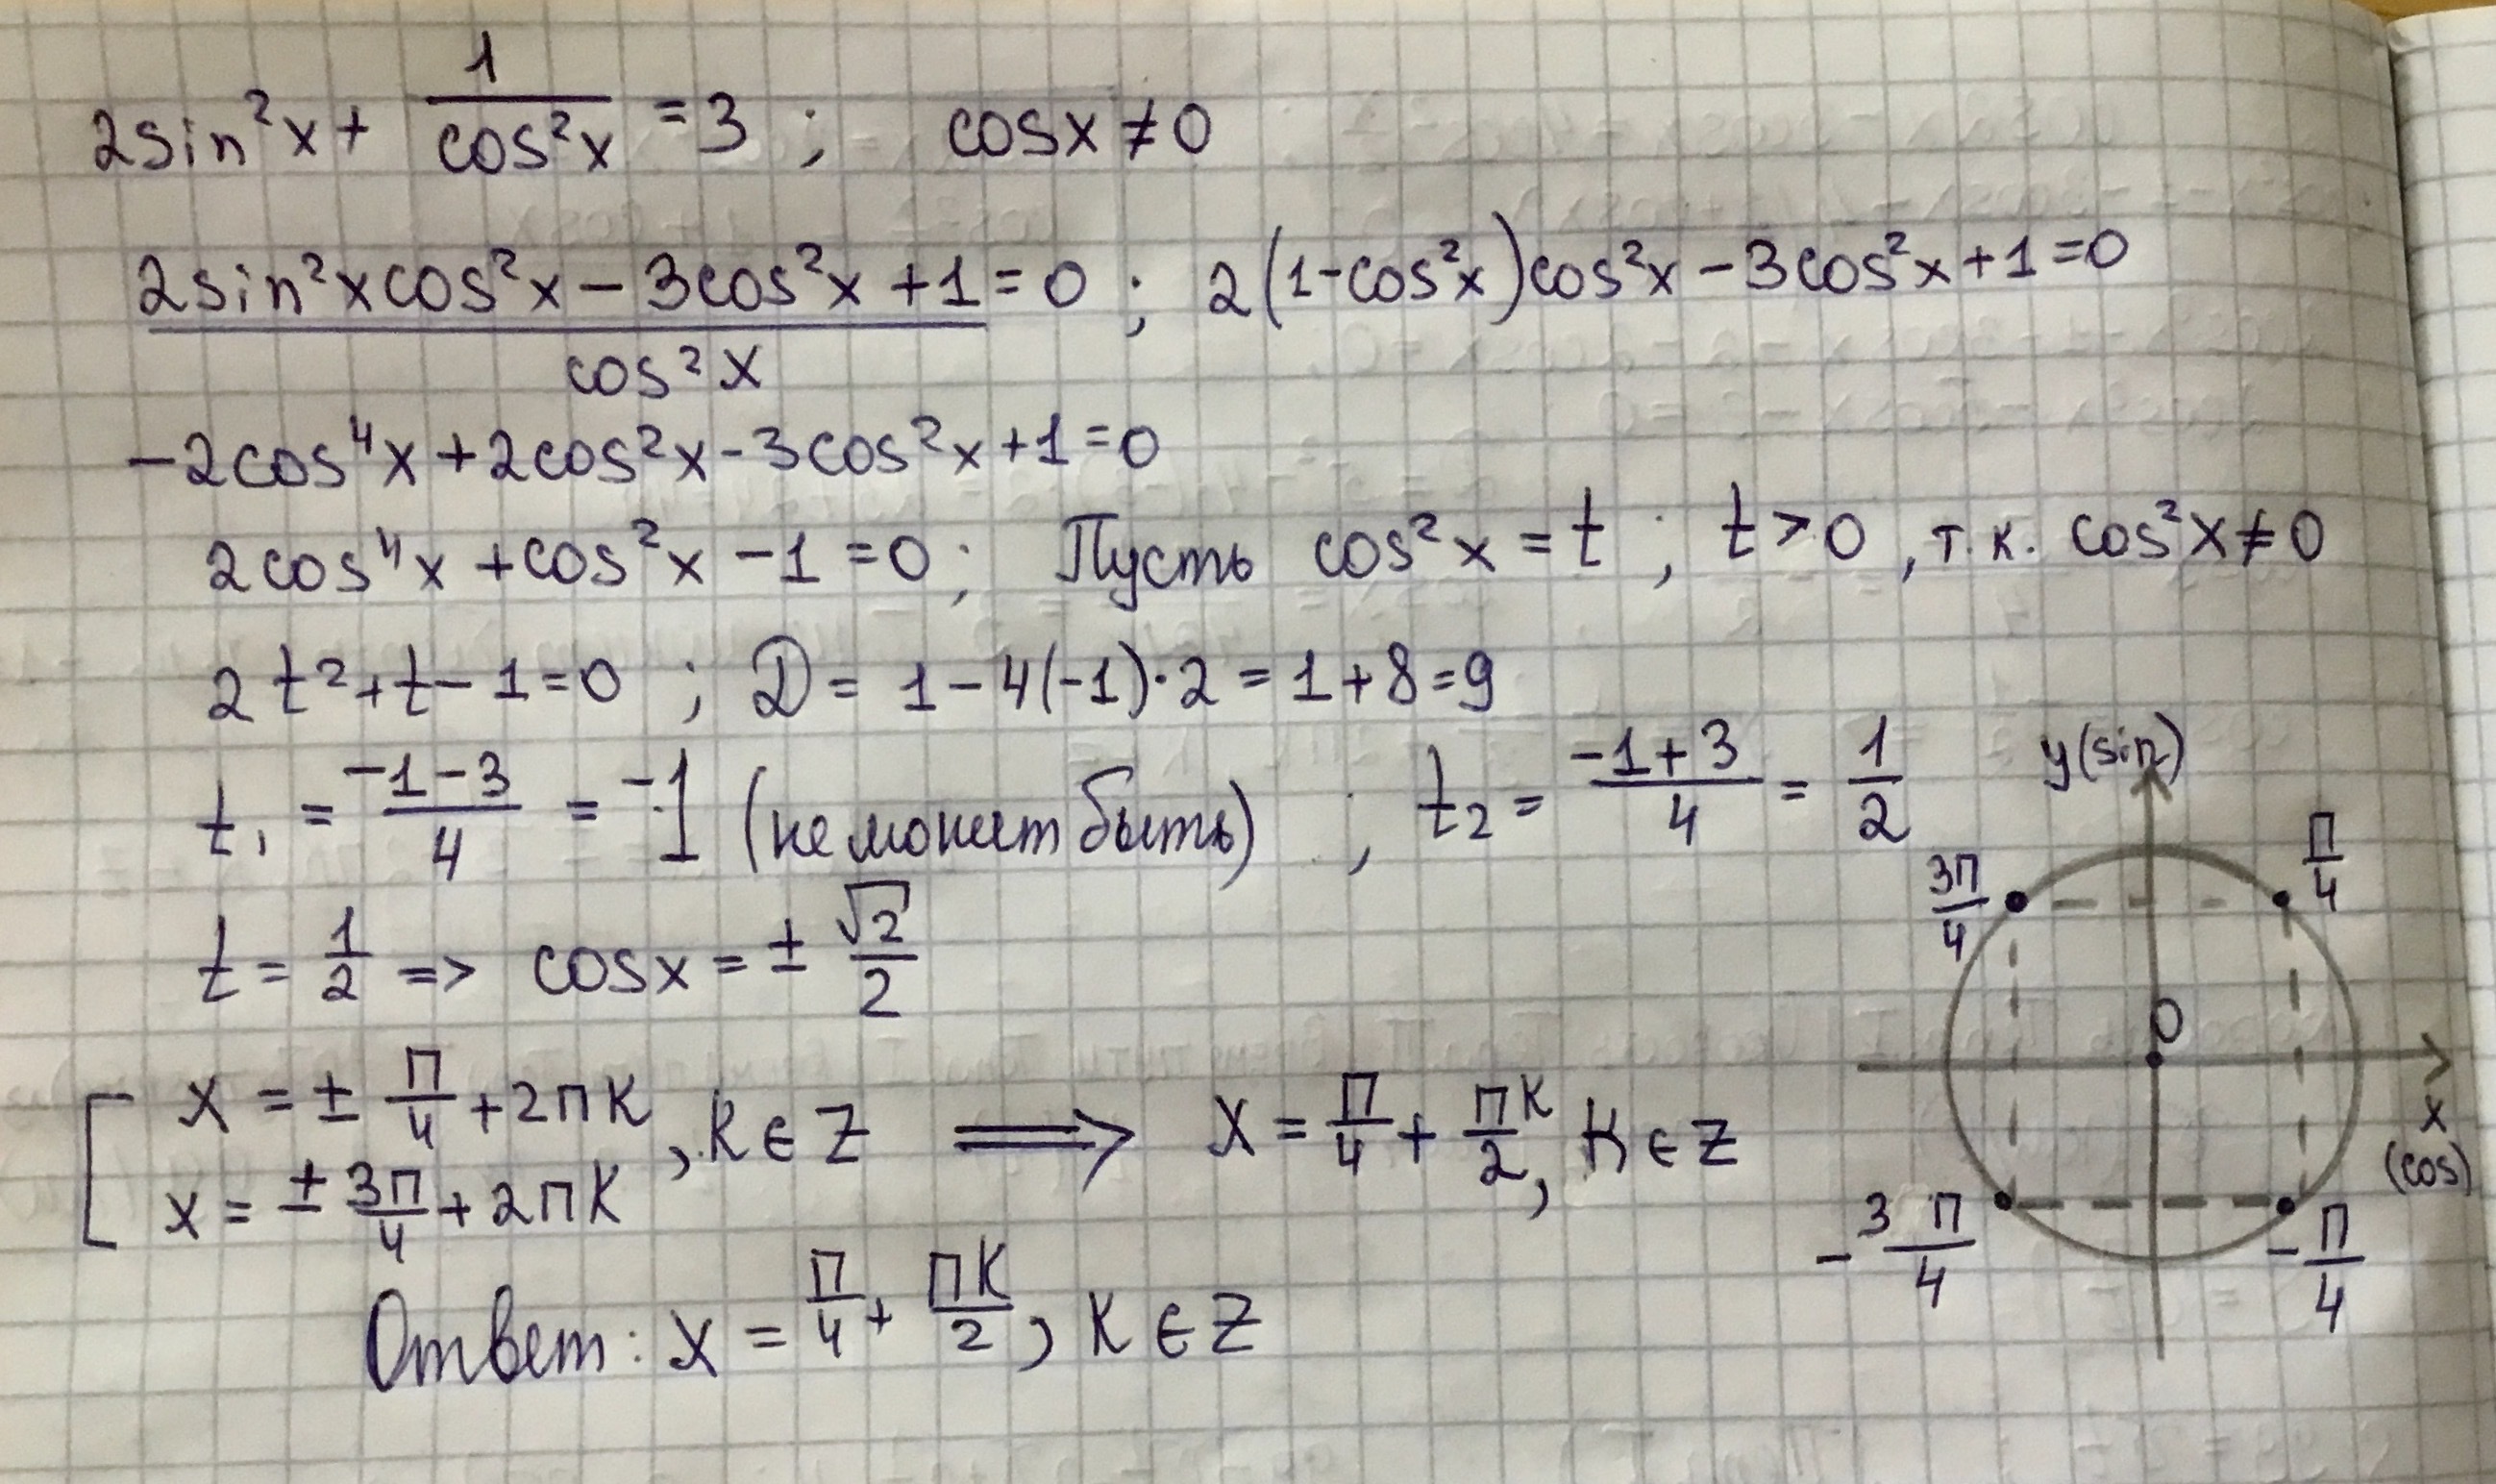 2sin²x + 1/cos²x = 3 ; cosx ≠ 0
(2sin²xcos²x − 3cos²x + 1)/cos²x = 0 ; 2(1-cos²x)cos²x − 3cos²x + 1 = 0
−2cos⁴x + 2cos²x - 3cos²x + 1 = 0
2cos⁴x + cos²x − 1 = 0 ; Пусть cos²x = t ; t > 0 , т.к. cos²x ≠ 0
2t² + t − 1 = 0 ; D = 1 − 4(−1)·2 = 1 + 8 = 9
t₁ = (−1−3)/4 = −1 (не может быть) ; t₂ = (−1+3)/4 = 1/2
t = 1/2 => cosx = ± √2/2
[ x = ± П/4 + 2Пк
x = ± 3П/4 + 2Пк , к ∈ Z ⟹ x = П/4 + Пк/2 , к ∈ Z
Ответ: x = П/4 + Пк/2 , к ∈ Z
y(sin)
3П/4
П/4
0
x
(cos)
−3П/4
−П/4